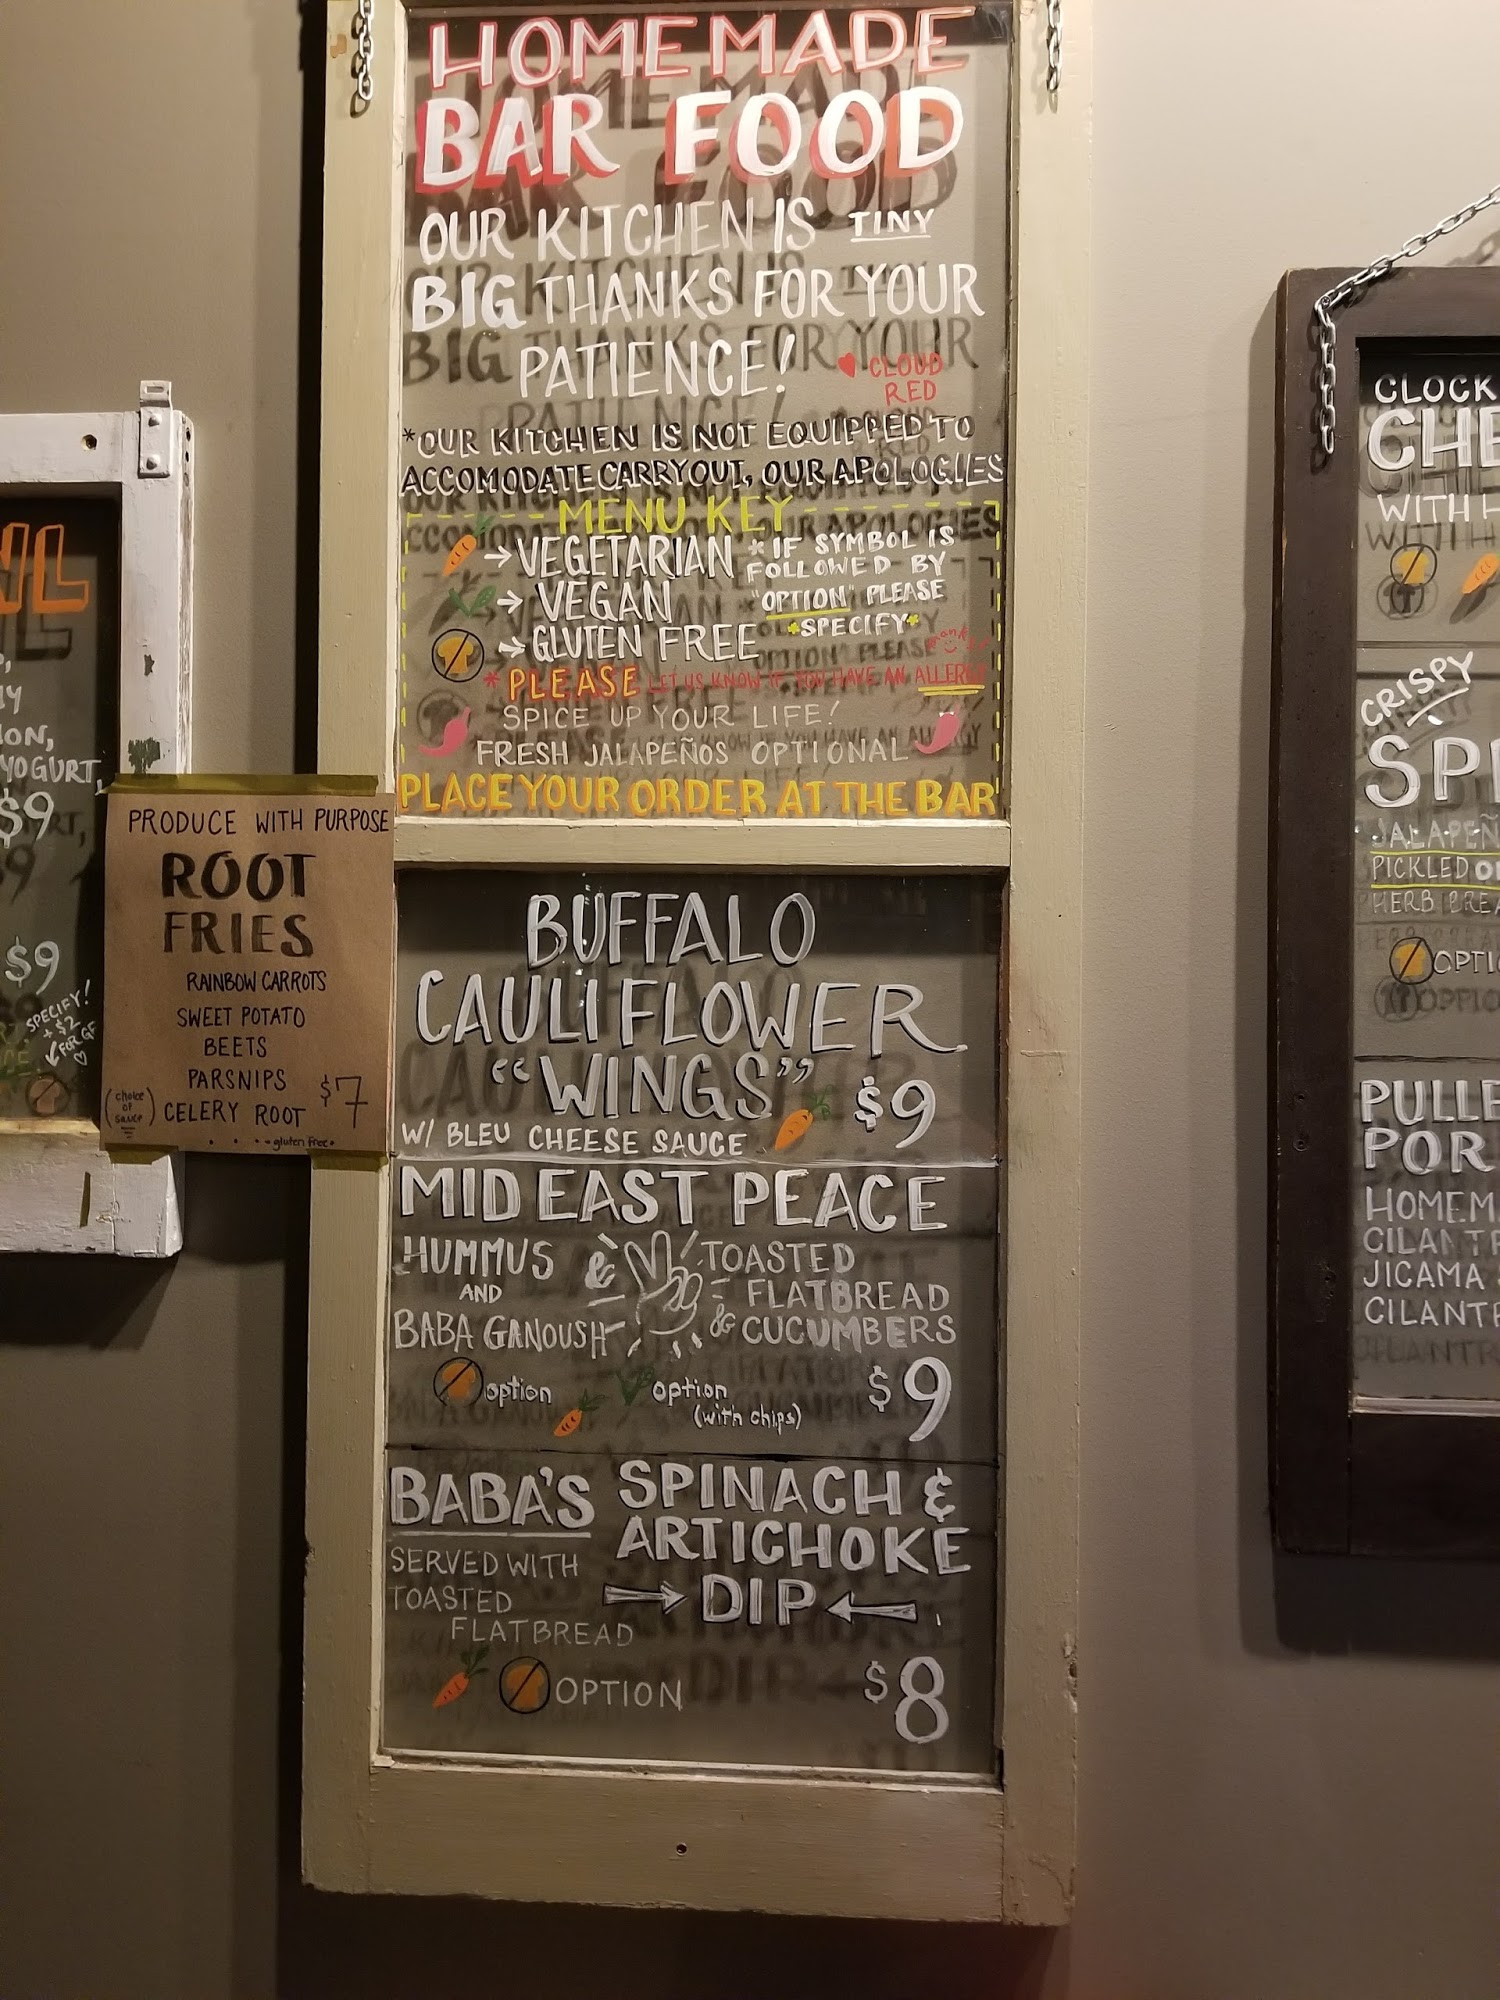 HOMEMADE
BAR FOOD
OUR KITCHEN IS TINY
BIG THANKS FOR YOUR
PATIENCE!
♥ CLOUD
RED
*OUR KITCHEN IS NOT EQUIPPED TO
ACCOMODATE CARRYOUT, OUR APOLOGIES
MENU KEY
→ VEGETARIAN
→ VEGAN
→ GLUTEN FREE
*IF SYMBOL IS
FOLLOWED BY
"OPTION" PLEASE
*SPECIFY*
* PLEASE LET US KNOW IF YOU HAVE AN ALLERGY
SPICE UP YOUR LIFE!
FRESH JALAPEÑOS OPTIONAL
PLACE YOUR ORDER AT THE BAR
BUFFALO
CAULIFLOWER
"WINGS" $9
W/ BLEU CHEESE SAUCE
MID EAST PEACE
HUMMUS
AND
BABA GANOUSH
&
TOASTED
FLATBREAD
& CUCUMBERS
option
option
(with chips)
$9
BABA'S
SPINACH &
ARTICHOKE
→ DIP ←
SERVED WITH
TOASTED
FLATBREAD
OPTION
$8
PRODUCE WITH PURPOSE
ROOT
FRIES
RAINBOW CARROTS
SWEET POTATO
BEETS
PARSNIPS
CELERY ROOT
(choice
of
sauce)
$7
gluten free
YOGURT,
$9
$9
SPECIFY!
+ $2
FOR GF
CLOCK
CHE
WITH H
CRISPY
SPI
JALAPEÑ
PICKLED
HERB BREA
OPTIO
PULLE
POR
HOMEM
CILANTR
JICAMA
CILANTR